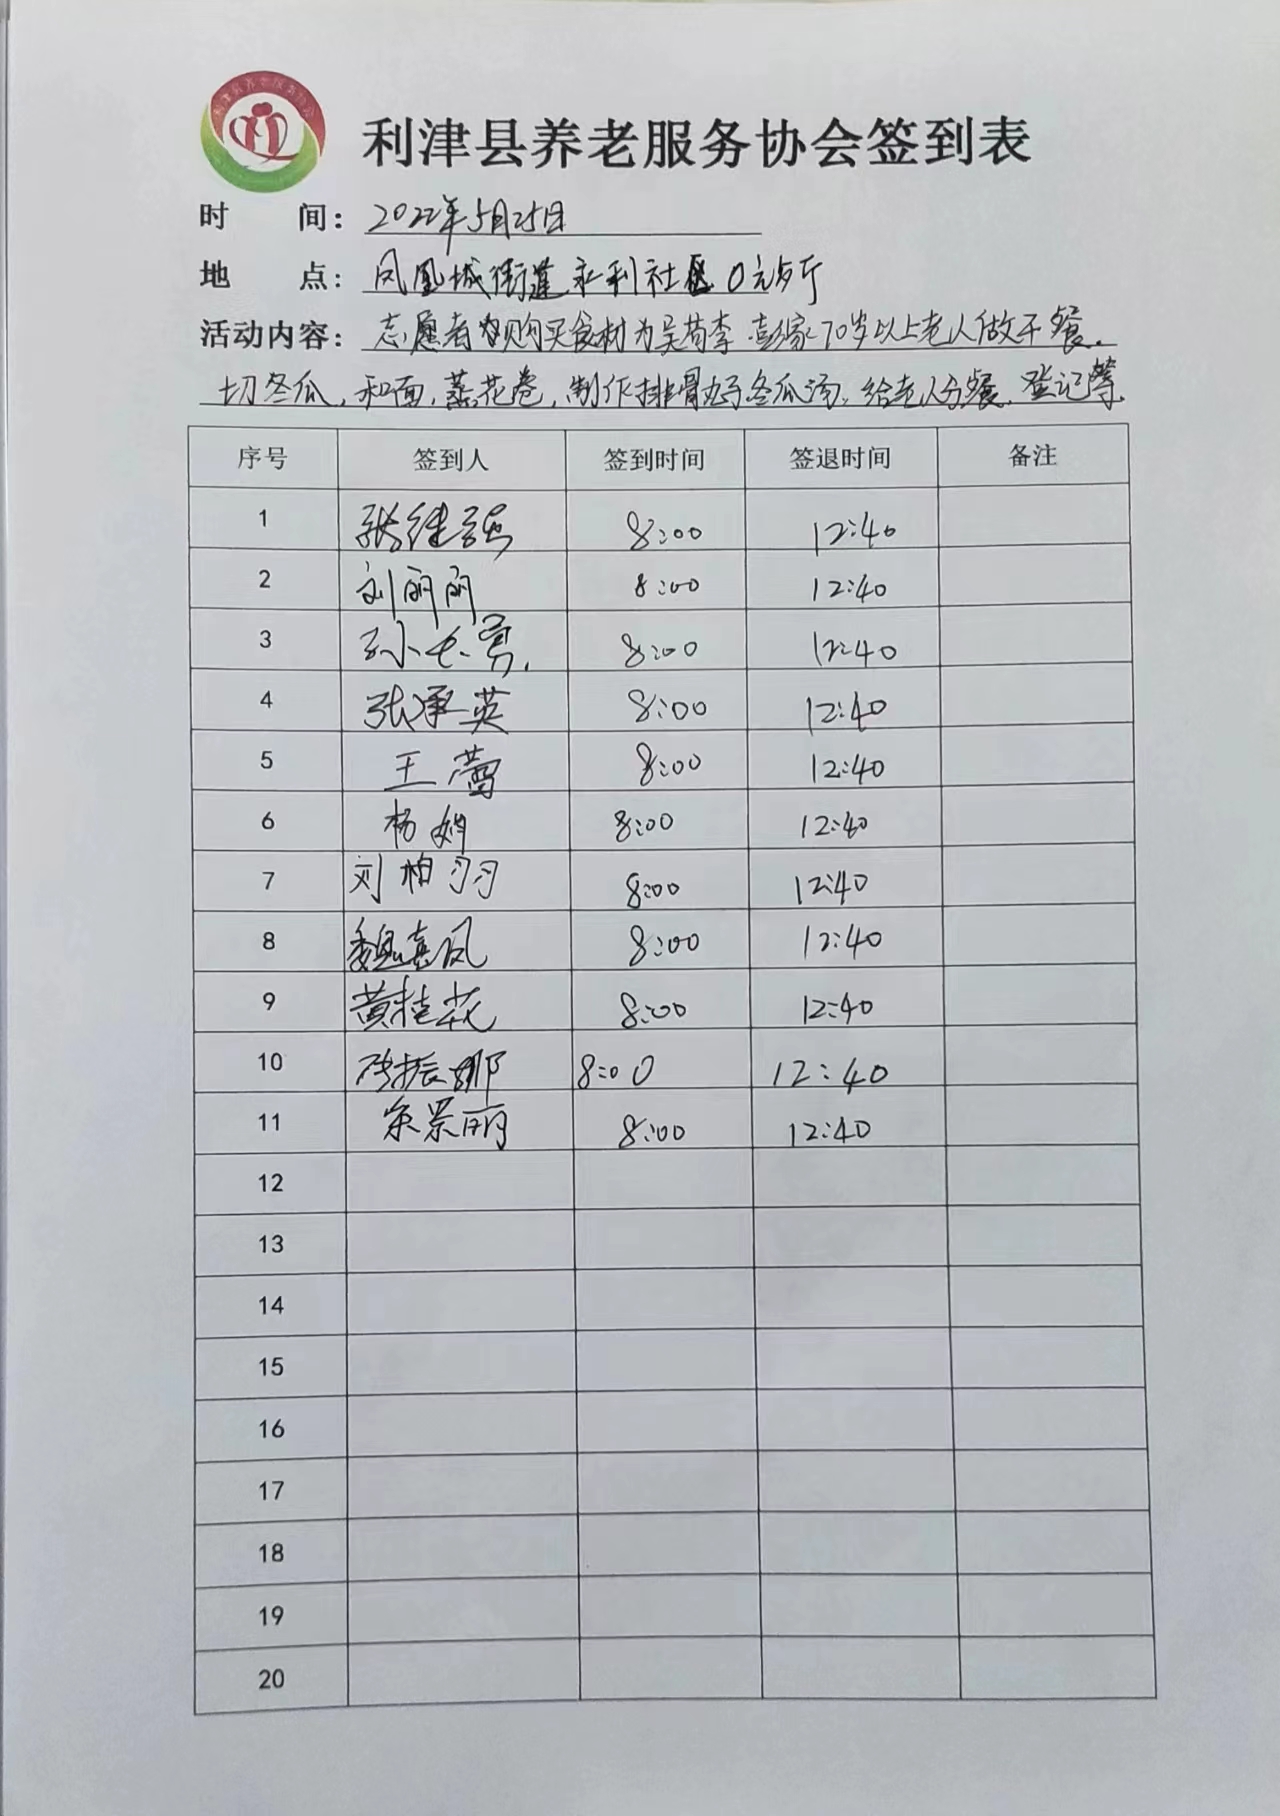 利津县养老服务协会签到表
时 间: 2022年5月25日
地 点: 凤凰城街道永利社区0元餐厅
活动内容: 志愿者购买食材为吴苟李 彭家70岁以上老人做午餐.
切冬瓜, 和面, 蒸花卷, 制作排骨丸子冬瓜汤. 给老人分餐. 登记等.
序号 签到人 签到时间 签退时间 备注
1 张继强 8:00 12:40
2 刘丽丽 8:00 12:40
3 孙长勇. 8:00 12:40
4 张承英 8:00 12:40
5 王蕾 8:00 12:40
6 杨娟 8:00 12:40
7 刘柏羽 8:00 12:40
8 魏嘉凤 8:00 12:40
9 黄桂花 8:00 12:40
10 张振娜 8:00 12:40
11 景丽 8:00 12:40
12
13
14
15
16
17
18
19
20